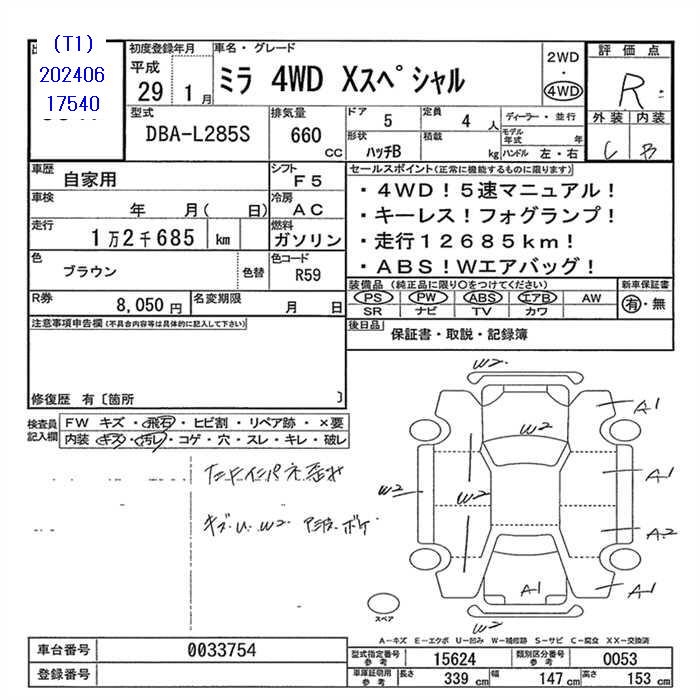 (T1)
202406
17540
初度登録年月
平成
29 1月
車名・グレード
ミラ 4WD Xスペシャル
2WD
・
4WD
評価点
R
外装 内装
C B
型式
DBA-L285S
排気量
660
CC
ドア
5
定員
4 人
形状
ハッチB
積載
kg
ディーラー・並行
モデル年式 年
ハンドル 左・右
車歴
自家用
シフト
F5
車検
年 月( 日)
冷房
AC
走行
1万2千685 km
燃料
ガソリン
色
ブラウン
色替
色コード
R59
R券
8,050円
名変期限
月 日
セールスポイント(正常に機能するものに限ります)
・4WD!5速マニュアル!
・キーレス!フォグランプ!
・走行12685km!
・ABS!Wエアバッグ!
装備品(純正品に限り○をつけてください)
PS PW ABS エアB AW
SR ナビ TV カワ
新車保証書
有・無
後日品
保証書・取説・記録簿
注意事項申告欄(不具合内容等は具体的に記入して下さい)
修復歴 有〔箇所 〕
検査員
記入欄
FW キズ・飛石・ヒビ割・リペア跡・×要
内装 キズ・汚レ・コゲ・穴・スレ・キレ・破レ
キズ U W2
ボケ
W2
W2
W2
W2
A1
A1
A2
A1
A1
W2
スペア
A-キズ E-エクボ U-凹み W-補修跡 S-サビ C-腐食 XX-交換済
車台番号
0033754
登録番号
型式指定番号
参考
15624
類別区分番号
参考
0053
車庫証明用
参考
長さ 339 cm 幅 147 cm 高さ 153 cm